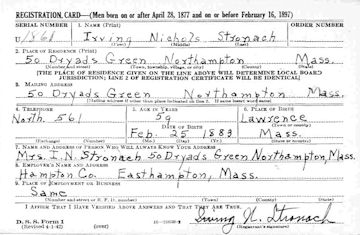 REGISTRATION CARD—(Men born on or after April 28, 1877 and on or before February 16, 1897)
SERIAL NUMBER 1. NAME (Print) ORDER NUMBER
U 1861 Irving Nichols Stronach
(First) (Middle) (Last)
2. PLACE OF RESIDENCE (Print)
50 Dryads Green Northampton Mass.
(Number and street) (Town, township, village, or city) (County) (State)
[THE PLACE OF RESIDENCE GIVEN ON THE LINE ABOVE WILL DETERMINE LOCAL BOARD
JURISDICTION; LINE 2 OF REGISTRATION CERTIFICATE WILL BE IDENTICAL]
3. MAILING ADDRESS
50 Dryads Green Northampton Mass.
[Mailing address if other than place indicated on line 2. If same insert word same]
4. TELEPHONE 5. AGE IN YEARS 6. PLACE OF BIRTH
North. 561 59 Lawrence
DATE OF BIRTH (Town or county)
Feb. 25 1883 Mass.
(Exchange) (Number) (Mo.) (Day) (Yr.) (State or country)
7. NAME AND ADDRESS OF PERSON WHO WILL ALWAYS KNOW YOUR ADDRESS
Mrs. I. N. Stronach 50 Dryads Green Northampton, Mass.
8. EMPLOYER'S NAME AND ADDRESS
Hampton Co. Easthampton, Mass.
9. PLACE OF EMPLOYMENT OR BUSINESS
Same
(Number and street or R. F. D. number) (Town) (County) (State)
I AFFIRM THAT I HAVE VERIFIED ABOVE ANSWERS AND THAT THEY ARE TRUE.
D. S. S. Form 1
(Revised 4-1-42) Irving N. Stronach
(Registrant's signature)